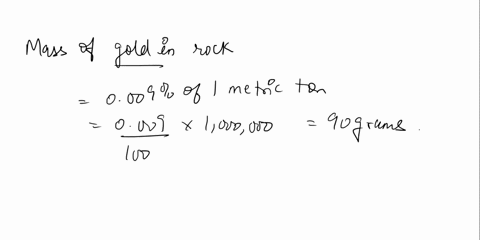 Mass of gold in rock
= 0.009% of 1 metric ton
= 0.009/100 × 1,000,000 = 90 grams.